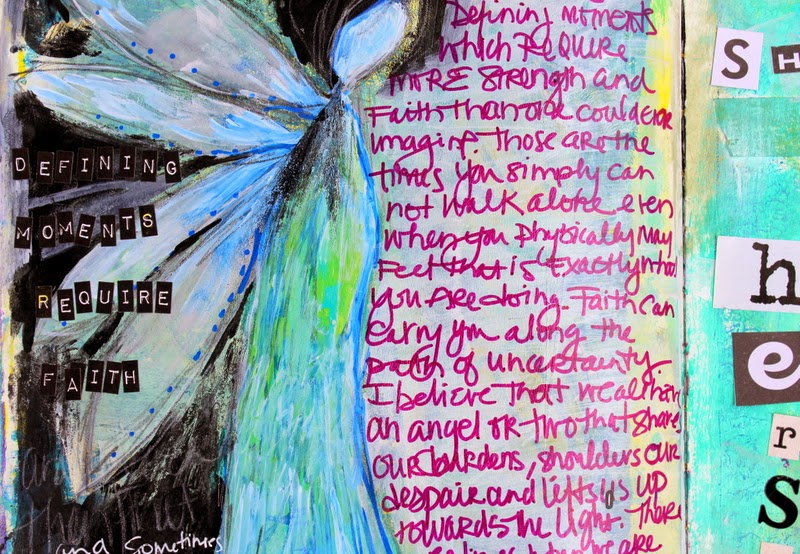 DEFINING
MOMENTS
REQUIRE
FAITH
and sometimes
Defining moments
which Require
more strength and
Faith than one could ever
imagine. Those are the
times you simply can
not walk alone even
when you physically may
Feel that is exactly what
you are doing. Faith can
carry you along the
path of uncertainty.
I believe that we all have
an angel or two that share
our burdens, shoulders our
despair and lifts us up
towards the light. There
when we are
SH
h
e
r
s